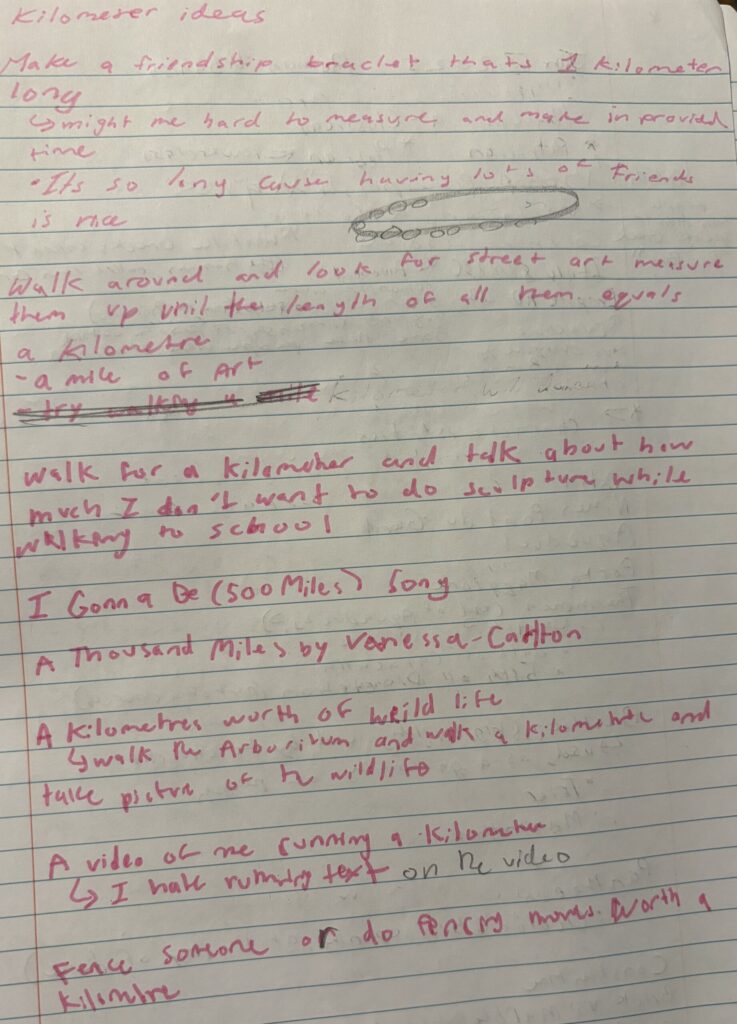 Kilometer ideas
Make a friendship braclet thats 1 kilometer
long
↳ might me hard to measure and make in provided
time
• Its so long cause having lots of Friends
is nice
Walk around and look for street art measure
them up until the length of all them equals
a kilometre
- a mile of Art
- try walking a mile
walk for a kilometer and talk about how
much I don't want to do sculpture while
walking to school
I Gonna Be (500 Miles) Song
A Thousand Miles by Vanessa-Carlton
A kilometres worth of wild life
↳ walk the Arboritum and walk a kilometre and
take picture of the wildlife
A video of me running a kilometer
↳ I hate running text on the video
Fence someone or do fencing moves worth a
kilometre